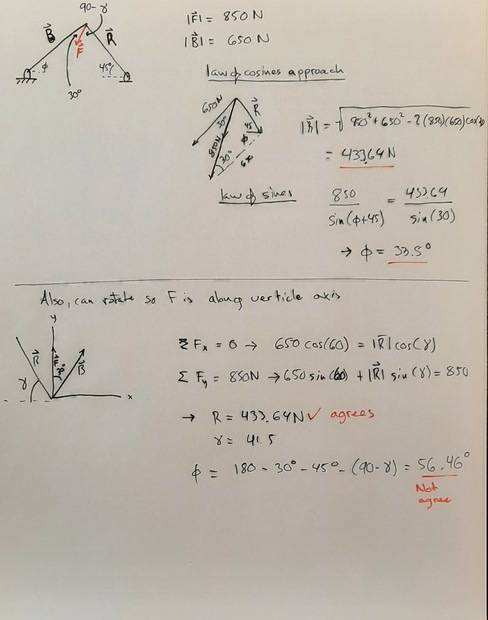 90-γ
B⃗
F
R⃗
ϕ
45°
30°
|F⃗| = 850 N
|B⃗| = 650 N
law of cosines approach
650N
30°
850N
R⃗
45
ϕ
30°
650
|R⃗| = √850² + 650² - 2(850)(650)cos30
= 433.64 N
law of sines
850 / sin(ϕ+45) = 433.64 / sin(30)
→ ϕ = 33.5°
Also, can rotate so F is along verticle axis
y
R⃗
B⃗
γ
x
ΣFx = 0 → 650 cos(60) = |R⃗| cos(γ)
ΣFy = 850N → 650 sin(60) + |R⃗| sin(γ) = 850
→ R = 433.64N ✓ agrees
γ = 41.5
ϕ = 180 - 30° - 45° - (90-γ) = 56.46°
Not
agree